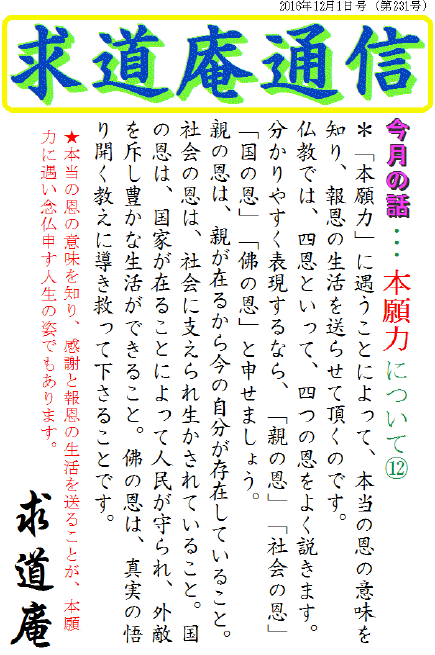 2016年12月1日号（第231号）
求道庵通信
今月の話…本願力について⑫
＊「本願力」に遇うことによって、本当の恩の意味を
知り、報恩の生活を送らせて頂くのです。
仏教では、四恩といって、四つの恩をよく説きます。
分かりやすく表現するなら、「親の恩」「社会の恩」
「国の恩」「佛の恩」と申せましょう。
親の恩は、親が在るから今の自分が存在していること。
社会の恩は、社会に支えられ生かされていること。国
の恩は、国家が在ることによって人民が守られ、外敵
を斥し豊かな生活ができること。佛の恩は、真実の悟
り開く教えに導き救って下さることです。
★本当の恩の意味を知り、感謝と報恩の生活を送ることが、本願
力に遇い念仏申す人生の姿でもあります。
求道庵